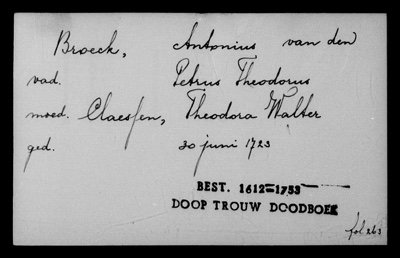 Broeck, Antonius van den
vad. Petrus Theodorus
moed. Claessen, Theodora Walter
ged. 30 juni 1723
BEST. 1612=1753
DOOP TROUW DOODBOEK
fol 263